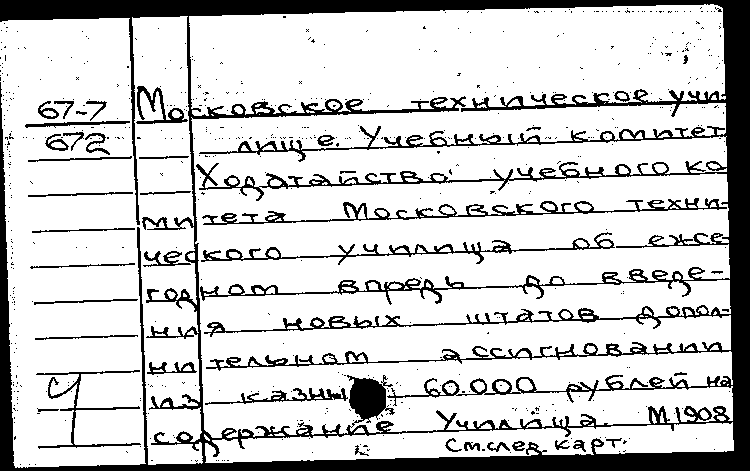 67-7 Московское техническое учи-
672 лище. Учебный комитет
Ходатайство учебного ко
митета Московского техни-
ческого училища об еже-
годном впредь до введе-
ния новых штатов допол-
нительном ассигновании
из казны 60.000 рублей на
содержание Училища. М,1908
См.след.карт.